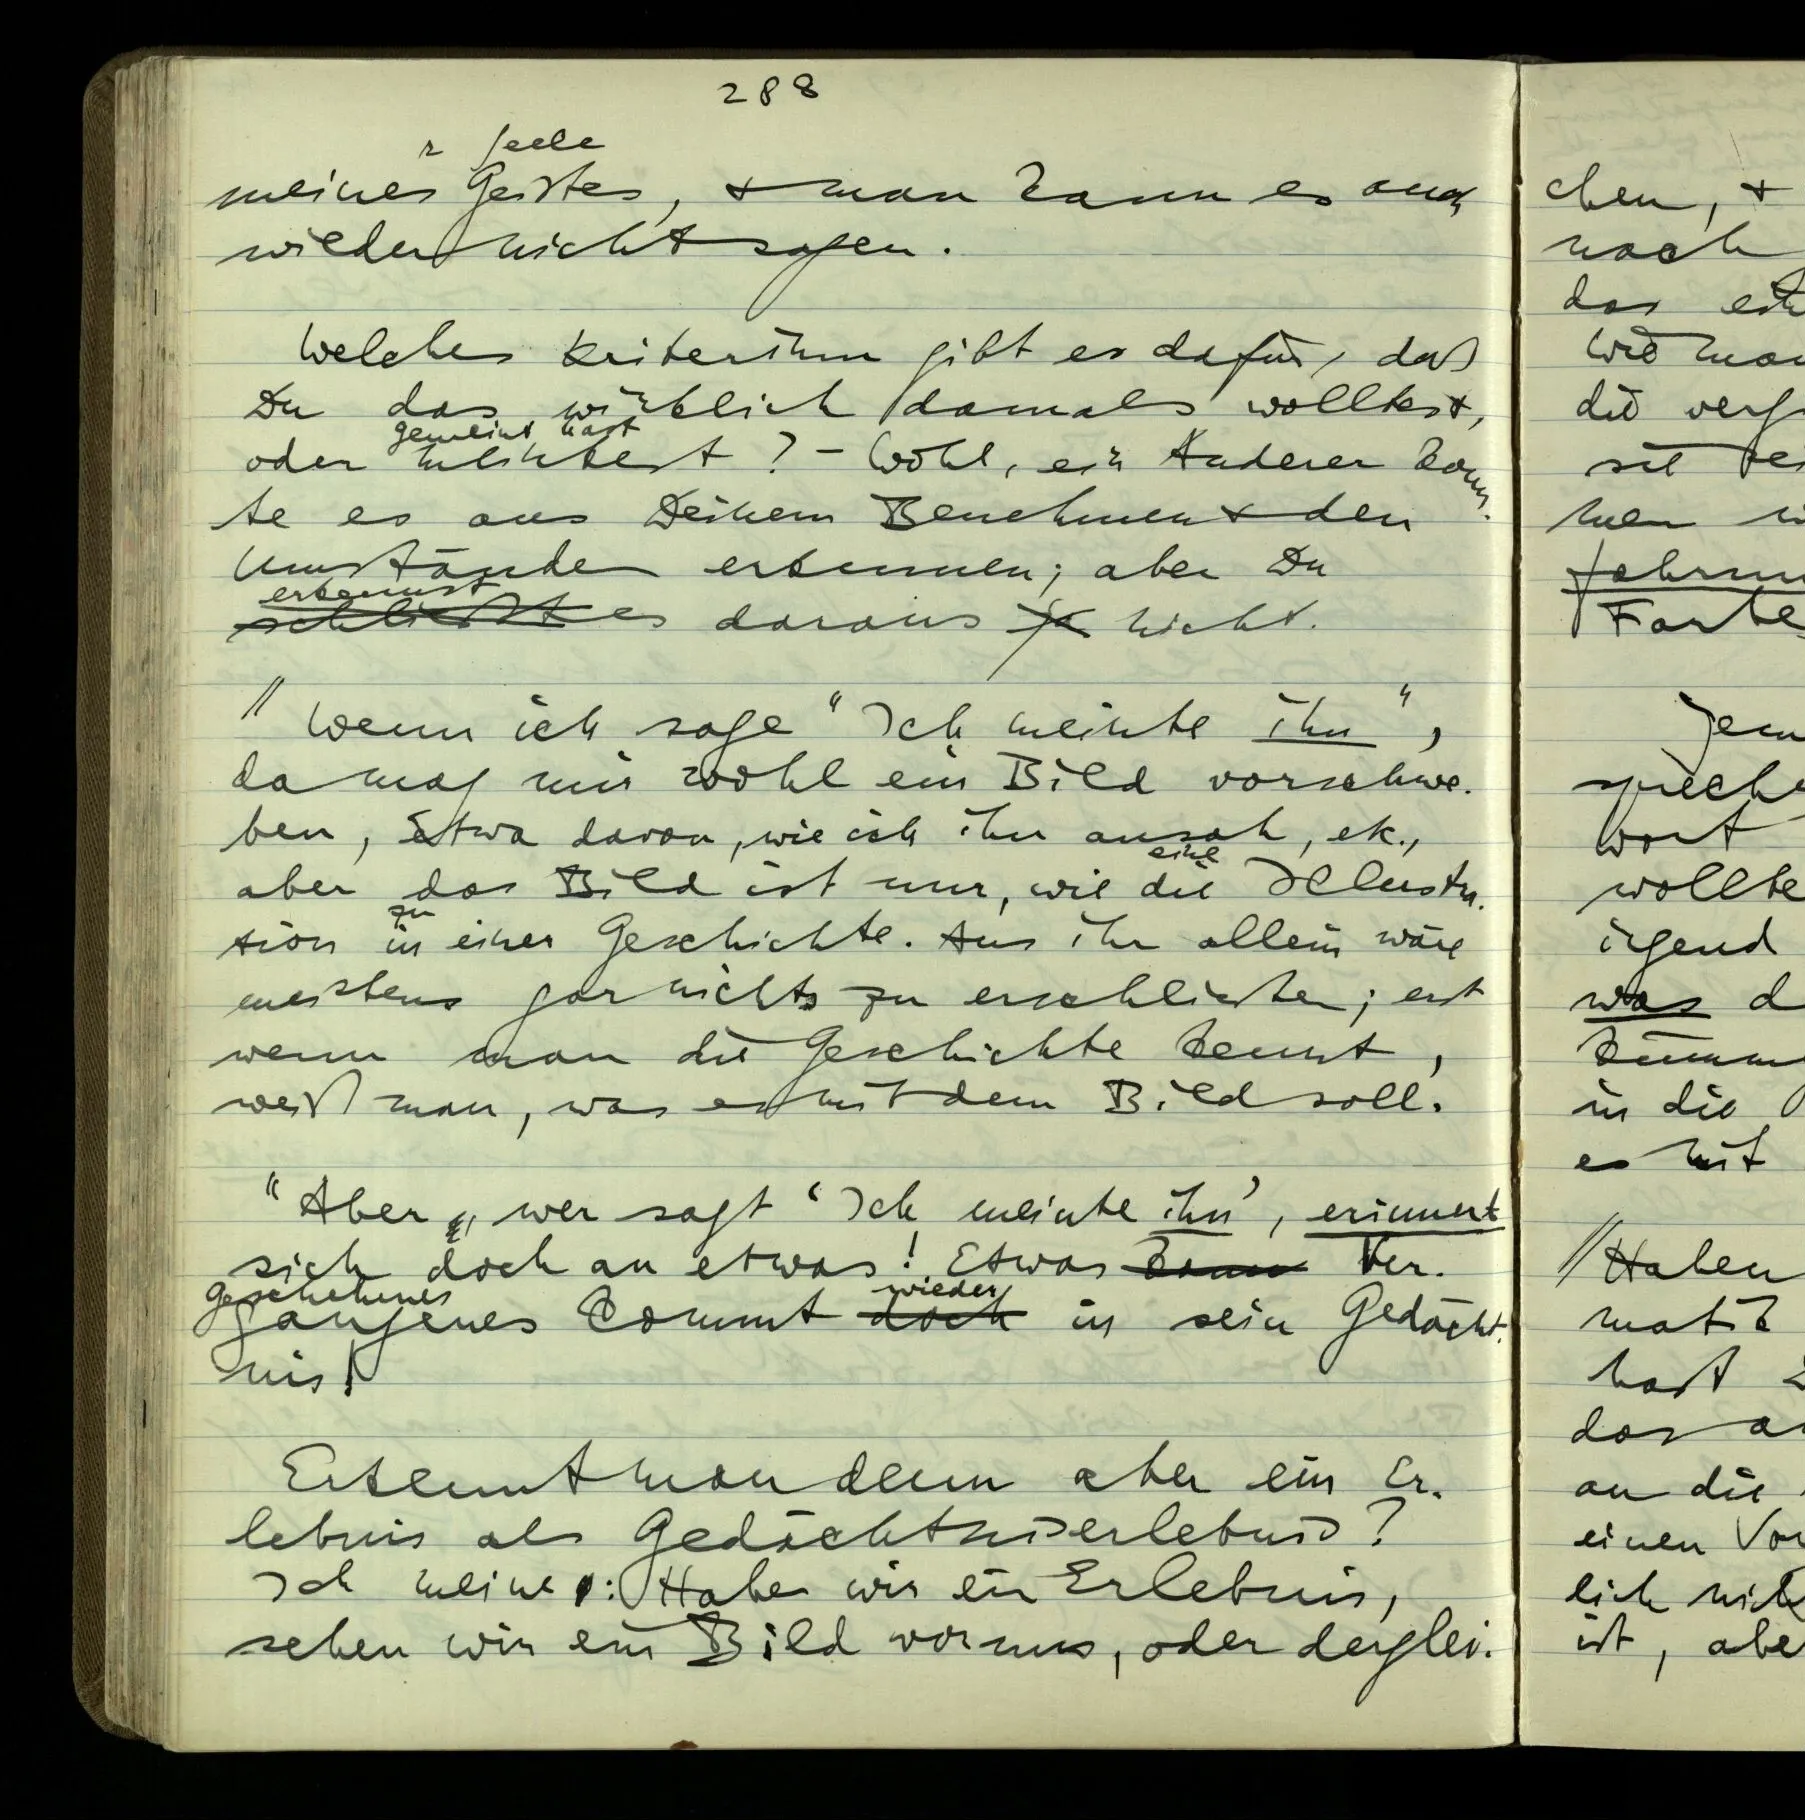 288
r Seele
meines Geistes, & man kann es auch
wieder nicht sagen.
Welches Kriterium gibt es dafür, daß
Du das wirklich damals wolltest,
gemeint hast
oder meintest? – Wohl, ein Anderer konn-
te es aus Deinem Benehmen & den
Umständen erkennen; aber Du
erkennst
schließt es daraus ja nicht.
// Wenn ich sage "Ich meinte ihn",
da mag mir wohl ein Bild vorschwe-
ben, etwa davon, wie ich ihn ansah, etc.,
eine
aber das Bild ist nur, wie die Illustra-
zu
tion in einer Geschichte. Aus ihr allein wäre
meistens gar nichts zu erschließen; erst
wenn man die Geschichte kennt,
weiß man, was es mit dem Bild soll.
"Aber, wer sagt 'Ich meinte ihn', erinnert
sich doch an etwas! Etwas kann Ver-
Geschehenes wieder
gangenes kommt doch in sein Gedächt-
nis!
Erkennt man denn aber ein Er-
lebnis als Gedächtniserlebnis?
Ich meine: Haben wir ein Erlebnis,
sehen wir ein Bild vor uns, oder derglei-
chen, &
noch
das
Wie
die
wort
wollte
irgend
was d
in die
es mit
// Haben
matik
hast
das
an die
einen Vor
lich nich
ist, abe